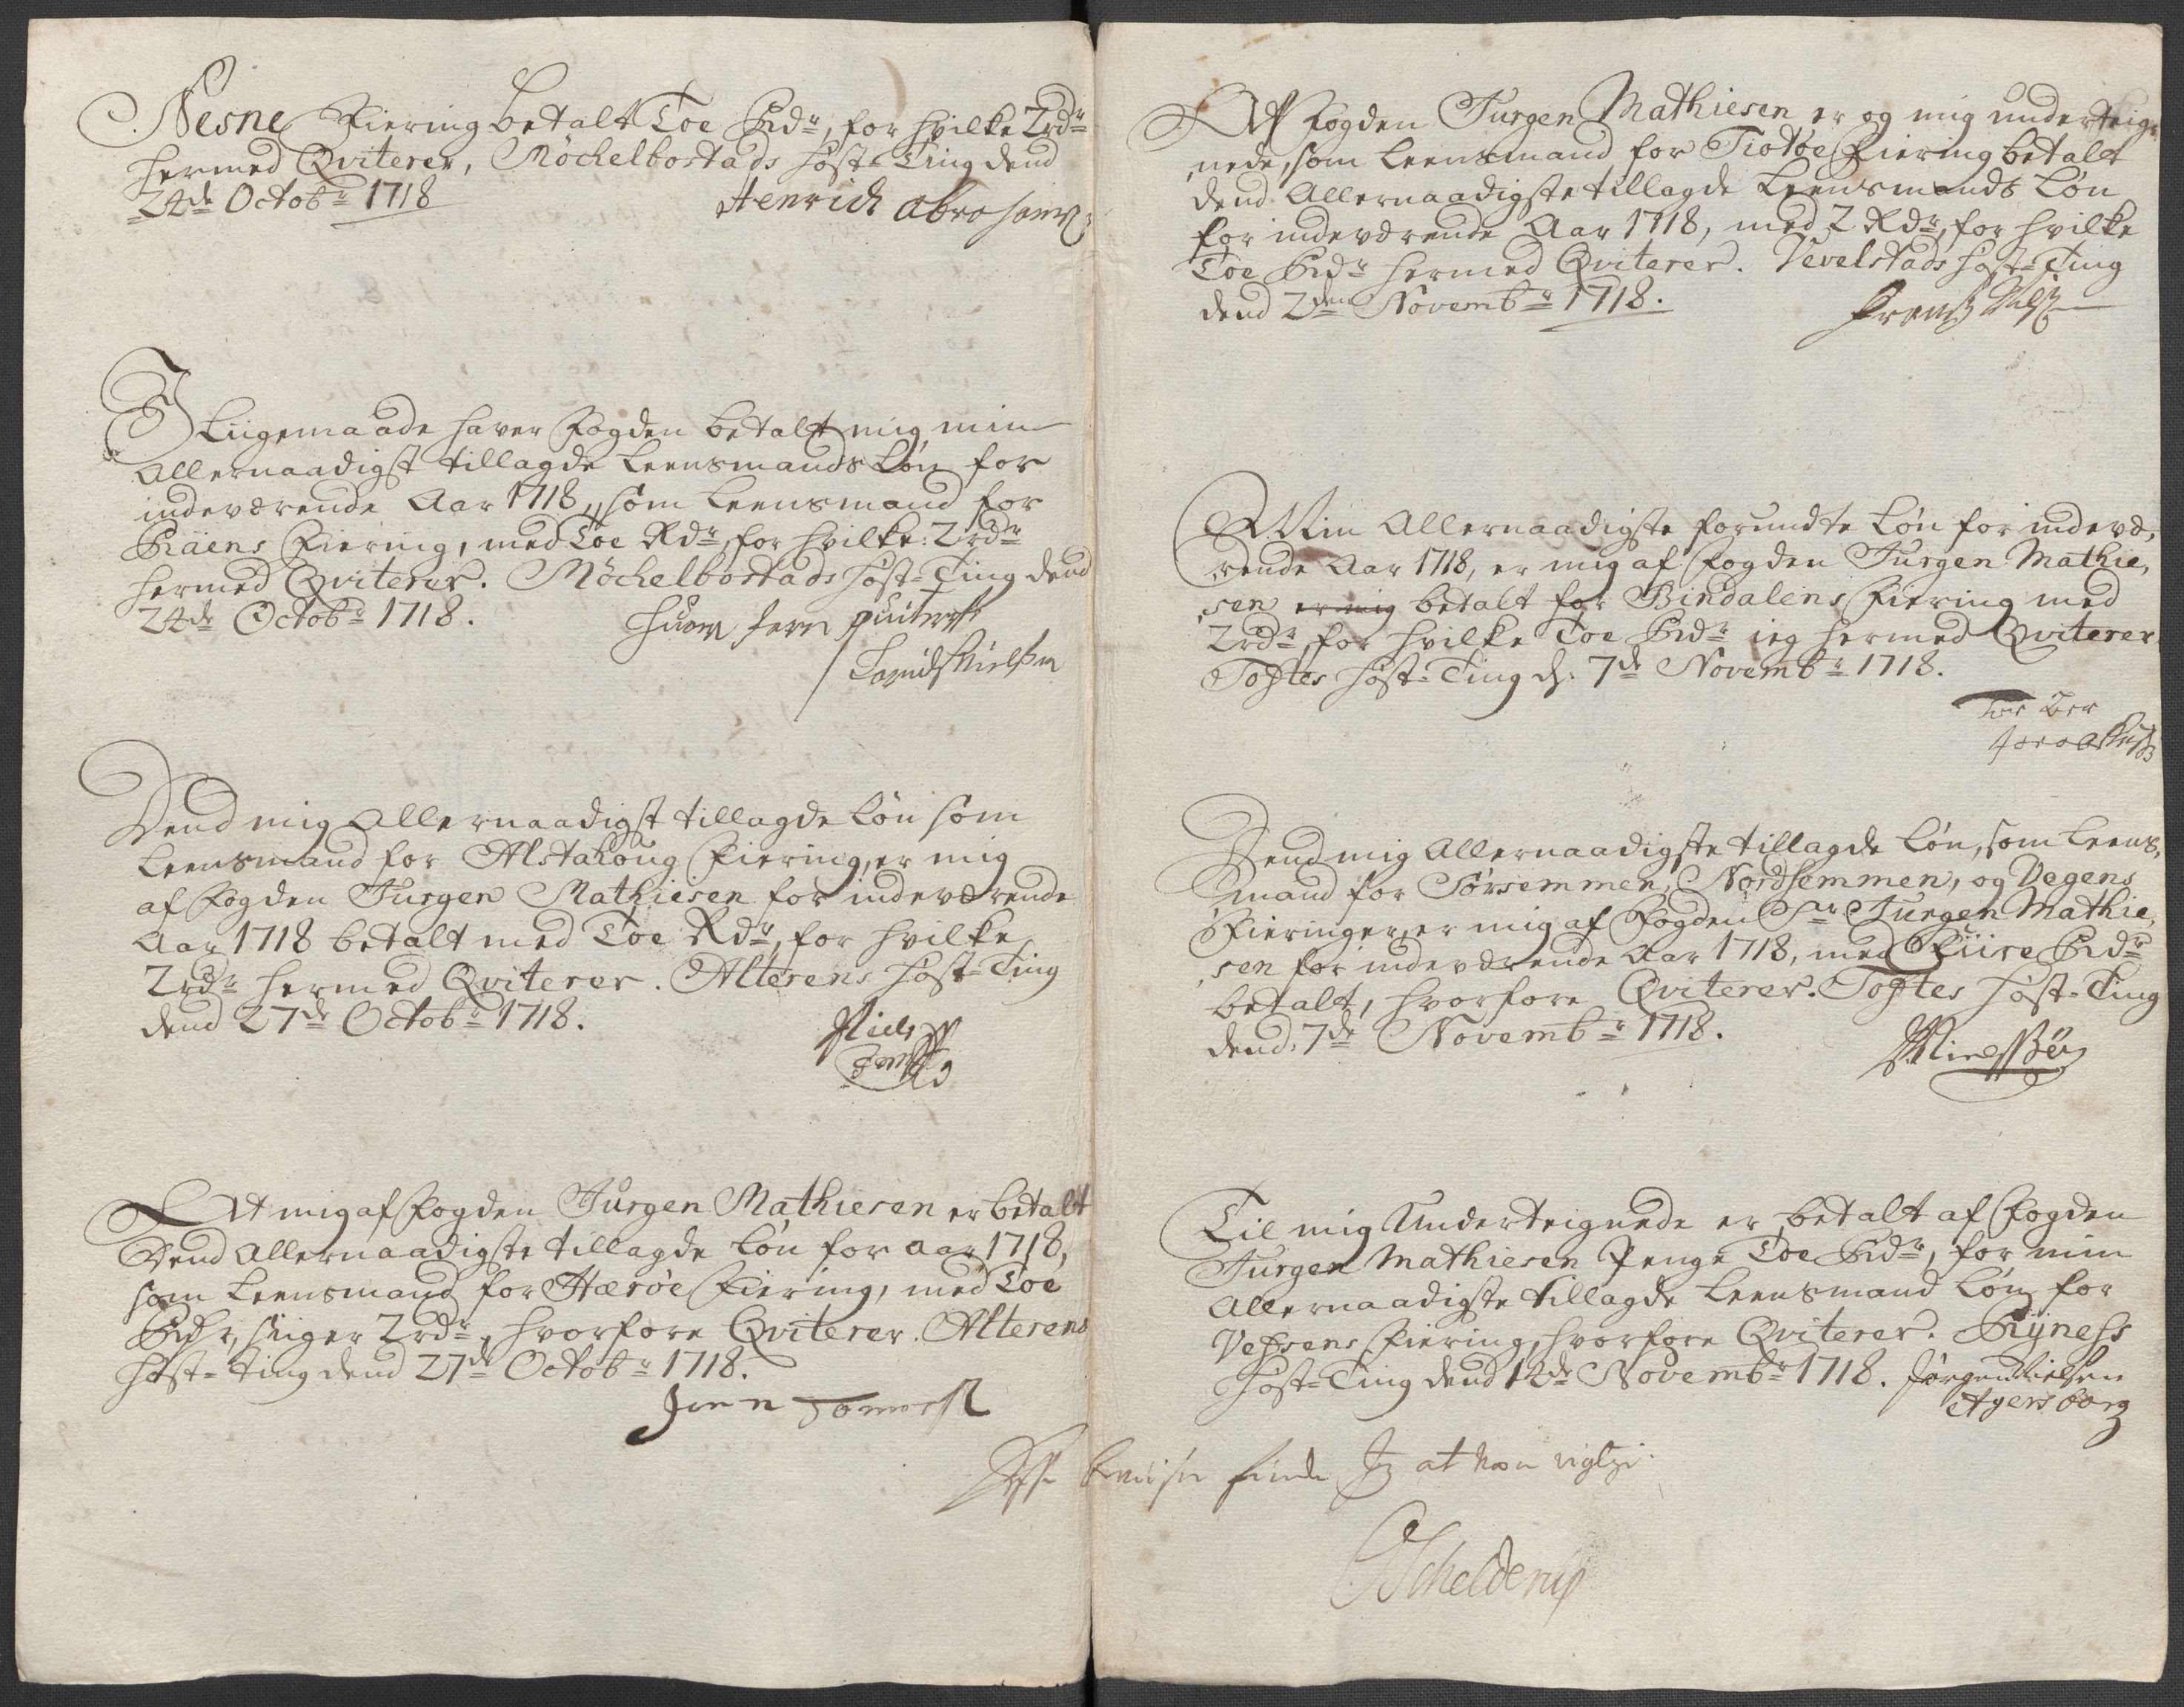 Nesne Fiering betalt Toe Rdr, for hvilke 2 rdr
hermed Qviterer, Möchelbostads Höst-Ting dend
24de Octobr 1718
Henrich Abrahams:
I Liigemaade haver Fogden betalt mig min
Allernaadigst tillagde Leensmands Løn for
indeværende Aar 1718, som Leensmand for
Raens Fiering, med Toe Rdr, for hvilke 2 rdr
hermed Qviterer. Möchelbostads Höst-Ting dend
24de Octobr 1718.
Dend mig Allernaadigst tillagde Løn som
Leensmand for Alstahoug Fiering, er mig
af Fogden Jurgen Mathiesen for indeværende
Aar 1718 betalt med Toe Rdr, for hvilke
2 rdr hermed Qviterer. Alterens Höst-Ting
dend 27de Octobr 1718.
Niels
At mig af Fogden Jurgen Mathiesen er betalt
Dend Allernaadigste tillagde Løn for Aar 1718,
som Leensmand for Herøe Fiering, med Toe
Rdr, siiger 2 rdr, hvorfore Qviterer. Alterens
Höst-Ting dend 27de Octobr 1718.
Af Fogden Jurgen Mathiesen er og mig underteig-
nede, som Leensmand for Tiotøe Fiering betalt
dend Allernaadigste tillagde Leensmands Løn
for indeværende Aar 1718, med 2 Rdr, for hvilke
Toe Rdr hermed Qviterer. Vevelstads Höst-Ting
dend 2den Novembr 1718.
Min Allernaadigste forundte Løn for indevæ,
rende Aar 1718, er mig af Fogden Jurgen Mathie,
sen er mig betalt for Bindalens Fiering med
2 rdr, for hvilke Toe Rdr ieg hermed Qviterer
Toftes Höst-Ting d: 7de Novembr 1718.
Dend mig Allernaadigste tillagde Løn, som Leens,
mand for Sørsemmen, Nordsemmen, og Vegens
Fieringer, er mig af Fogden Sr Jurgen Mathie,
sen for indeværende Aar 1718, med Fiire Rdr
betalt, hvorfore Qviterer. Toftes Höst-Ting
dend: 7de Novembr 1718.
Til mig Underteignede er betalt af Fogden
Jurgen Mathiesen Penge Toe Rdr, for min
Allernaadigste tillagde Leensmand Løn for
Vefsens Fiering, hvorfore Qviterer. Rÿness
Höst-Ting dend 12de Novembr 1718. Jørgen Nielsen
Agersborg
finde Jeg at være rigtig:
Schelderup